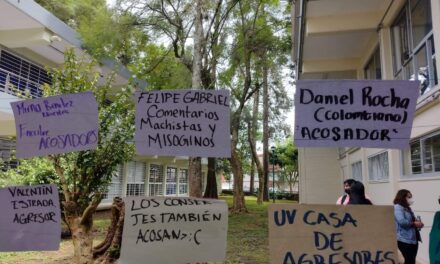 Mirna Benitez
Encubre
ACOSADORES
FELIPE GABRIEL
Comentarios
Machistas y
MISOGINOS
Daniel Rocha
(colombiano)
"ACOSADOR"
VALENTIN
ESTRADA
AGRESOR
LOS CONSER
JES TAMBIÉN
ACOSAN >:(
UV CASA
DE
AGRESORES